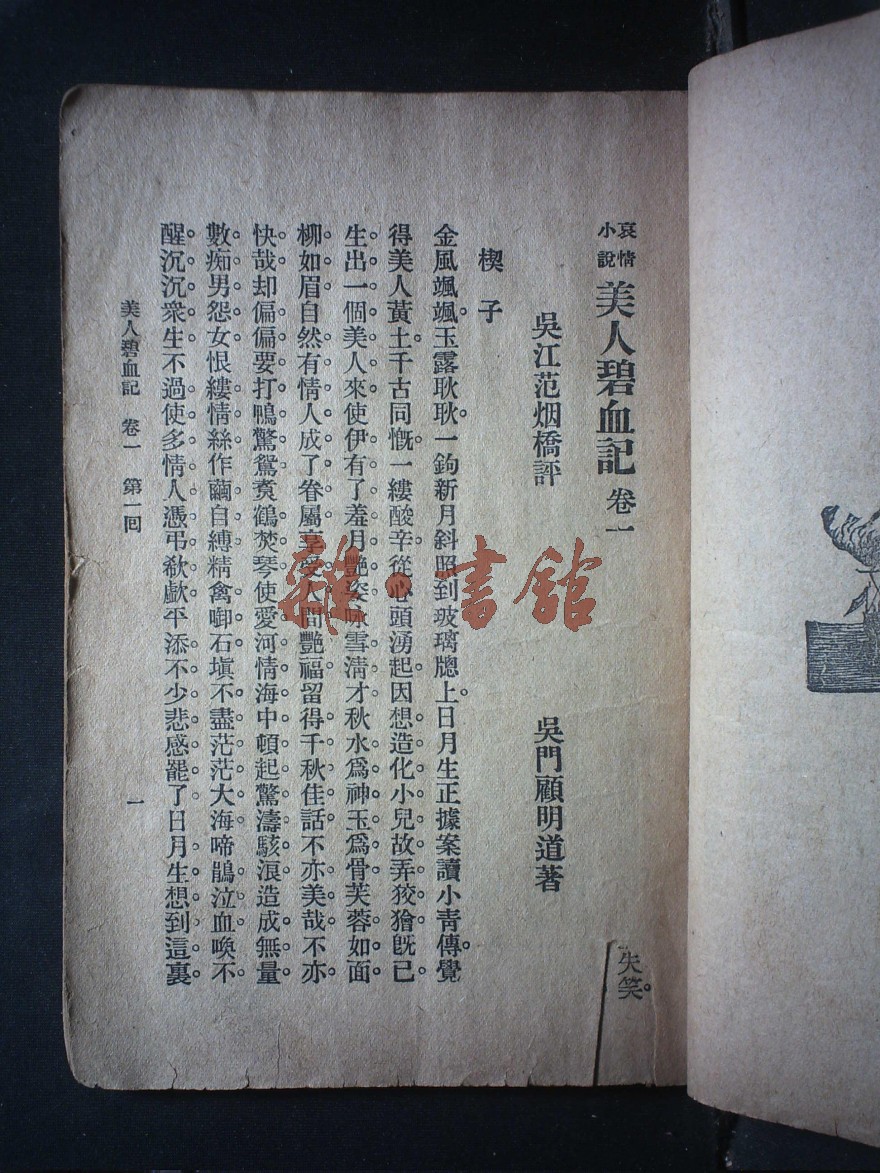 失笑。
哀情小說 美人碧血記 卷一
吳江范烟橋評 吳門顧明道著
楔子
金風颯颯。玉露耿耿。一鈎新月。斜照到玻璃牕上。日月生正據案讀小青傳。覺
得美人黃土。千古同慨。一縷酸辛。從心頭湧起。因想造化小兒。故弄狡獪。旣已
生出一個美人來。使伊有了羞月艷姿。咏雪清才。秋水爲神。玉爲骨。芙蓉如面。
柳如眉。自然有情人成了眷屬。享受人間艷福。留得千秋佳話。不亦美哉。不亦
快哉。却偏偏要打鴨驚鴛。煑鶴焚琴。使愛河情海中。頓起驚濤駭浪。造成無量
數痴男怨女。恨縷情絲。作繭自縛。精禽啣石。塡不盡茫茫大海。啼鵑泣血。喚不
醒沉沉衆生。不過使多情人憑弔欷歔。平添不少悲感罷了。日月生想到這裏。
美人碧血記 卷一 第一回 一
雜·書館